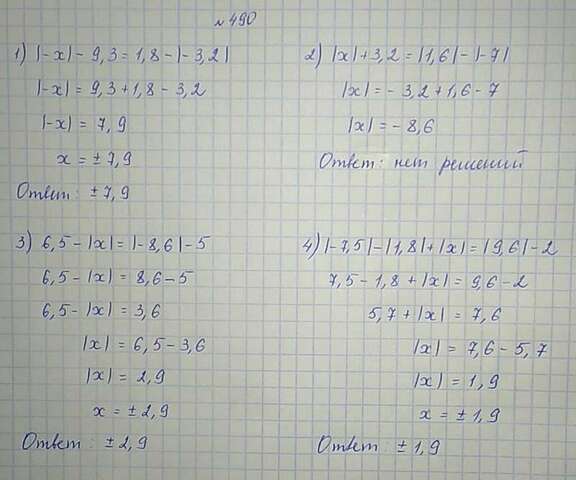 №490
1) |-x| - 9,3 = 1,8 - |-3,2|
|-x| = 9,3 + 1,8 - 3,2
|-x| = 7,9
x = ± 7,9
Ответ: ± 7,9
2) |x| + 3,2 = |1,6| - |-7|
|x| = - 3,2 + 1,6 - 7
|x| = - 8,6
Ответ: нет решений
3) 6,5 - |x| = |-8,6| - 5
6,5 - |x| = 8,6 - 5
6,5 - |x| = 3,6
|x| = 6,5 - 3,6
|x| = 2,9
x = ± 2,9
Ответ: ± 2,9
4) |-7,5| - |1,8| + |x| = |9,6| - 2
7,5 - 1,8 + |x| = 9,6 - 2
5,7 + |x| = 7,6
|x| = 7,6 - 5,7
|x| = 1,9
x = ± 1,9
Ответ: ± 1,9